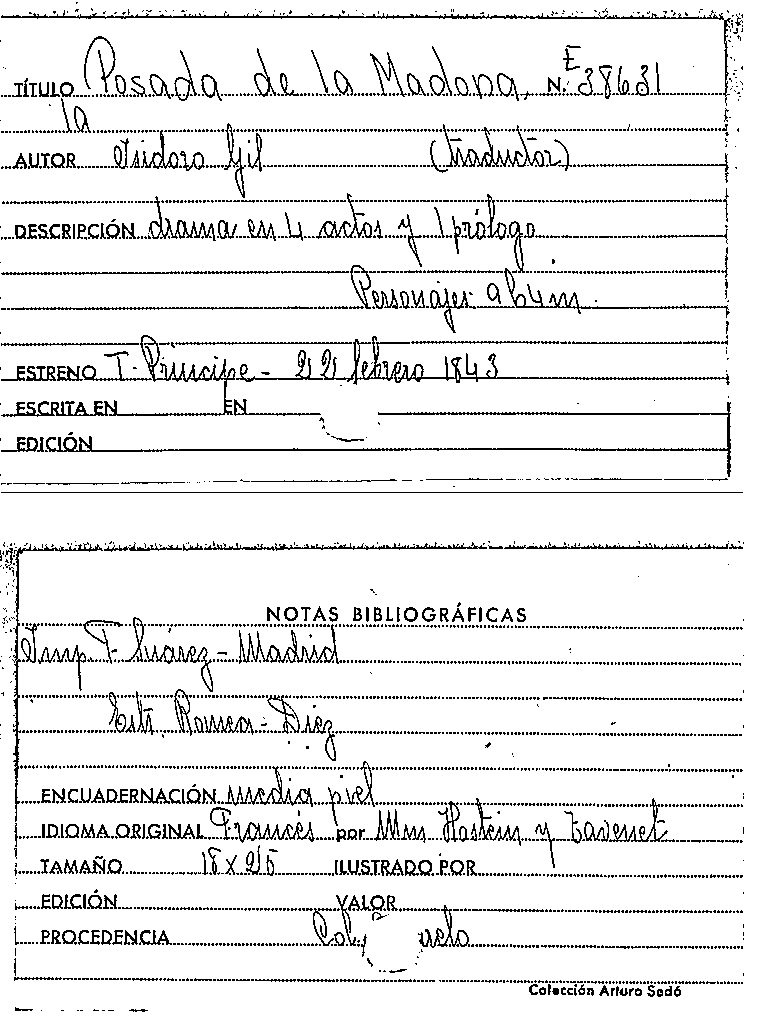 TÍTULO Posada de la Madona, N.º E 38631
la
AUTOR Isidoro Gil (traductor)
DESCRIPCIÓN drama en 4 actos y 1 prólogo
Personajes 9 h 4 m.
ESTRENO T. Príncipe - 22 febrero 1843
ESCRITA EN EN
EDICIÓN
NOTAS BIBLIOGRÁFICAS
Imp. F. Suárez - Madrid
Estr. Romea - Díez
ENCUADERNACIÓN media piel
IDIOMA ORIGINAL Francés por Mm Hostein y Tavenet
TAMAÑO 18 x 25 ILUSTRADO POR
EDICIÓN VALOR
PROCEDENCIA
Colección Arturo Sedó